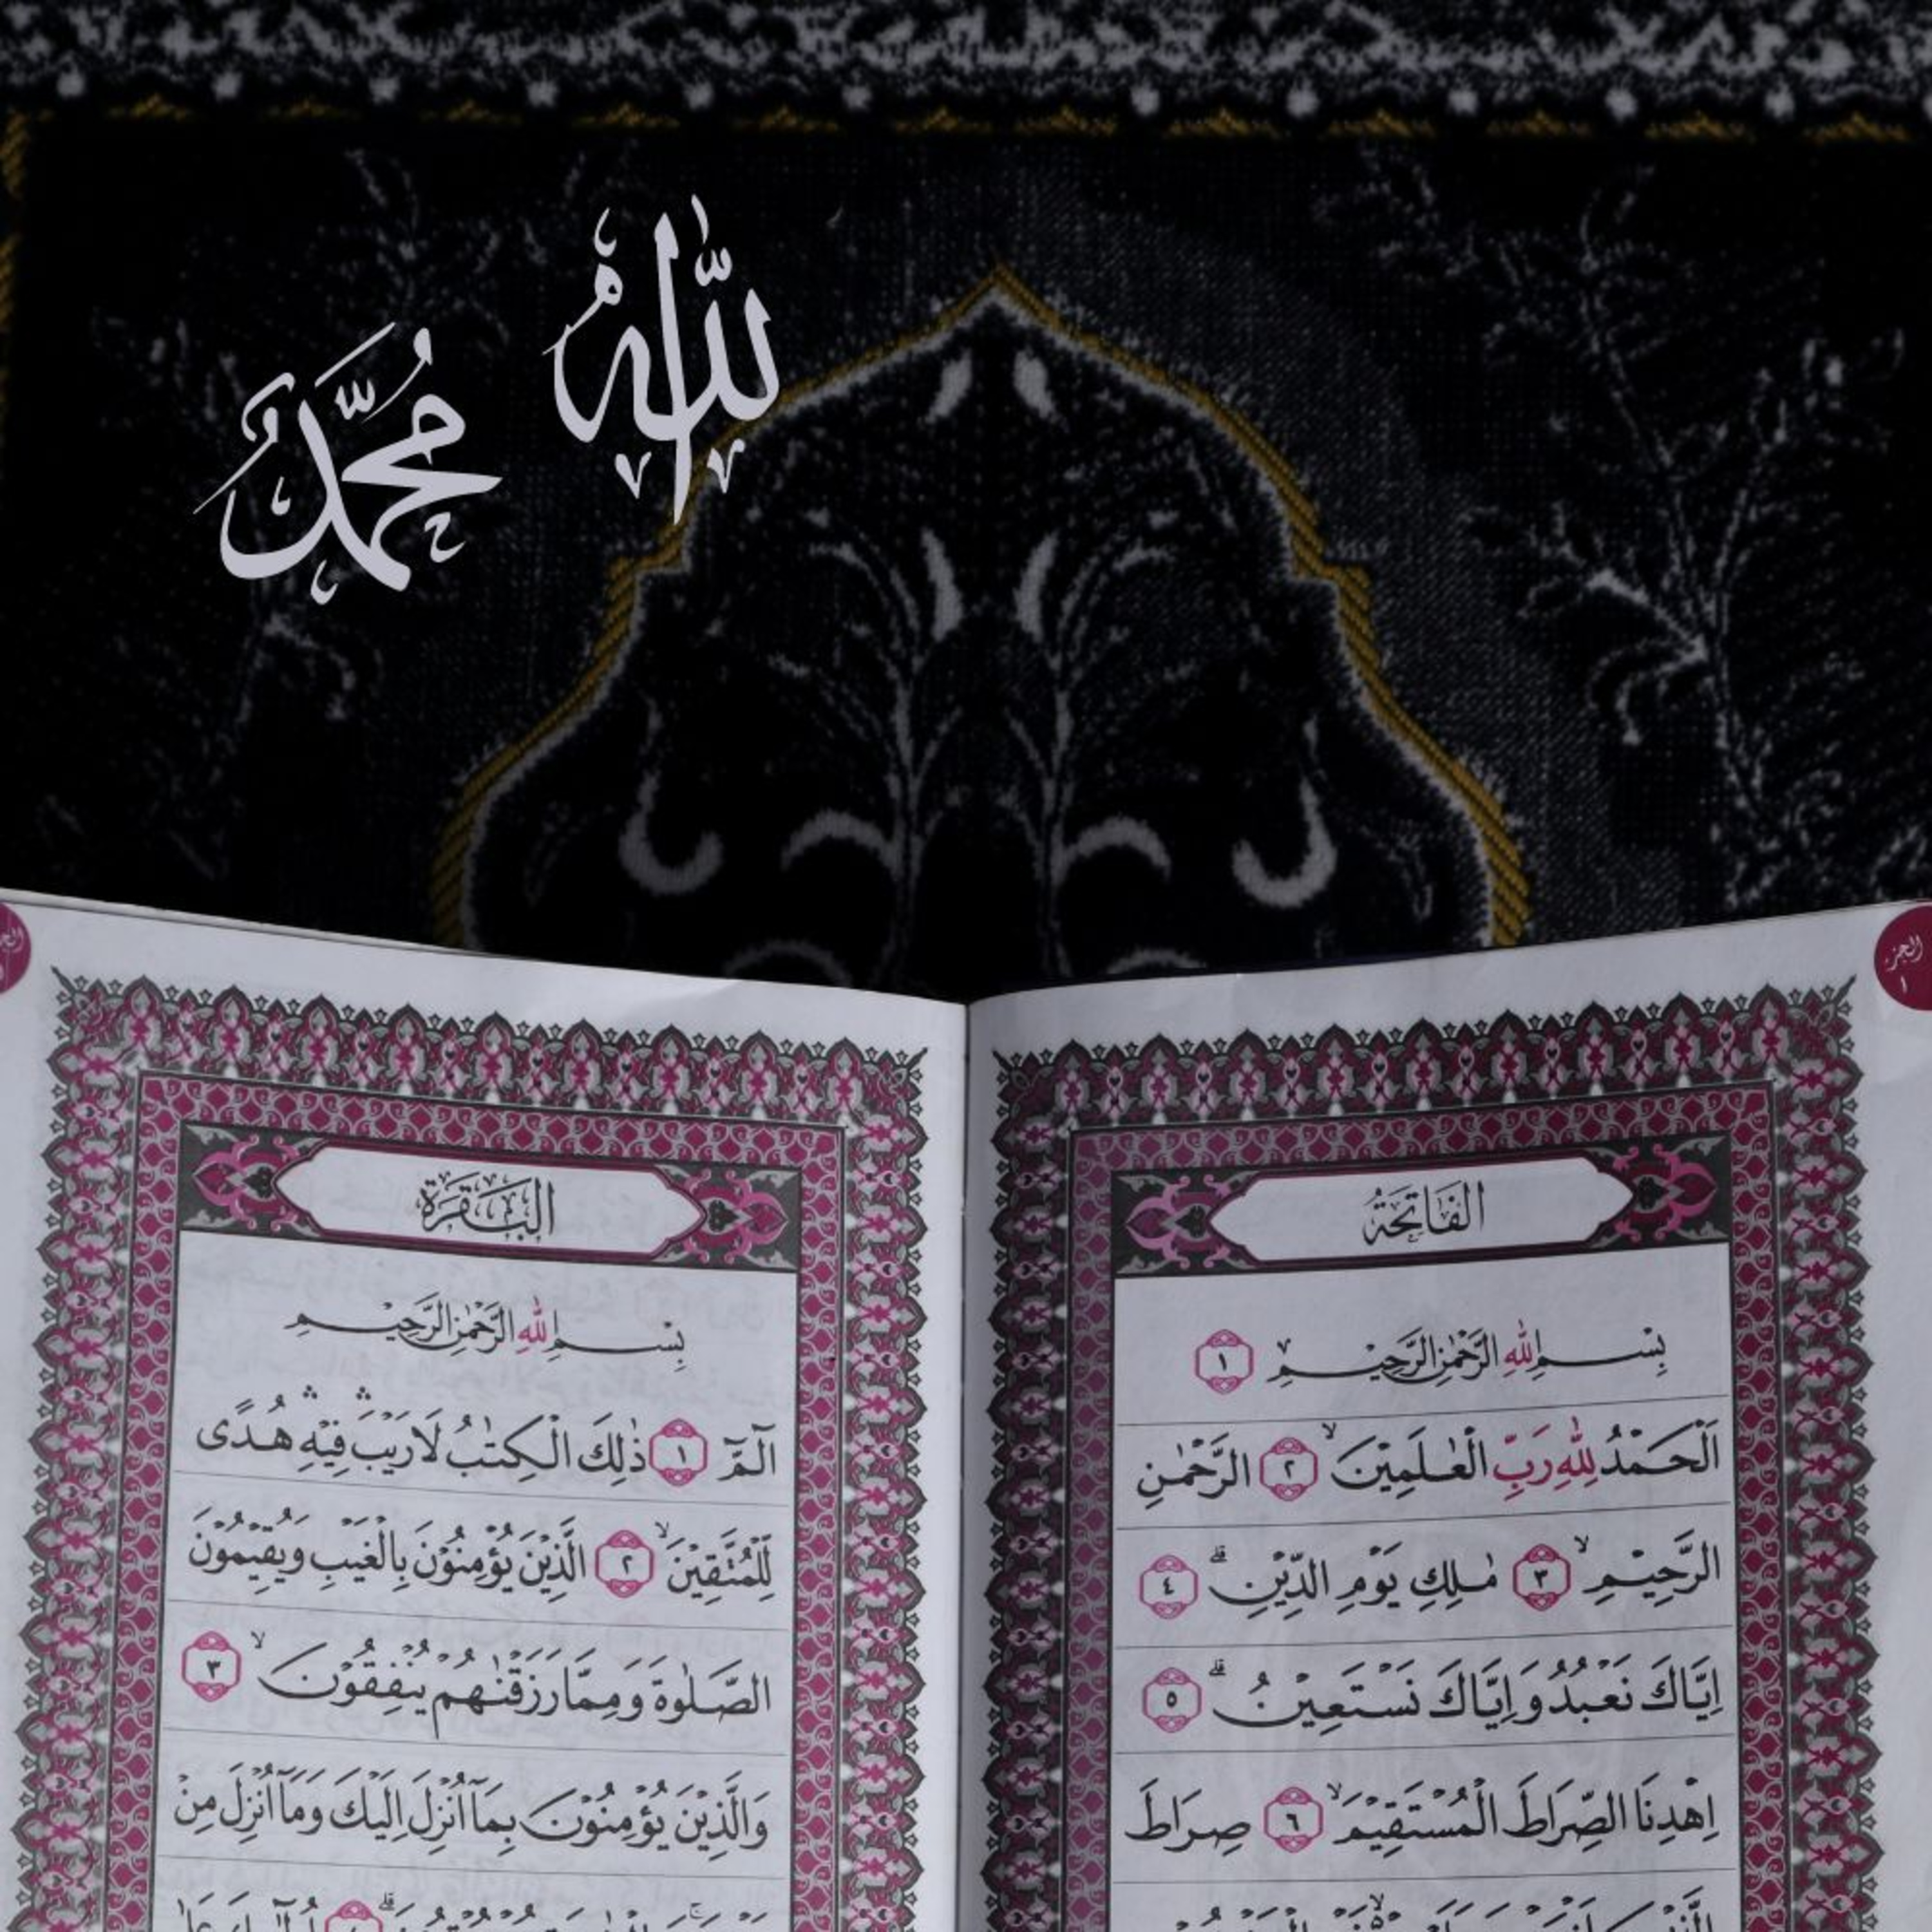 الله
محمد
الجزء
١
الفَاتِحَةُ
بِسْمِ اللهِ الرَّحْمٰنِ الرَّحِيْمِ ١
اَلْحَمْدُ لِلّٰهِ رَبِّ الْعٰلَمِيْنَۙ ٢ الرَّحْمٰنِ
الرَّحِيْمِۙ ٣ مٰلِكِ يَوْمِ الدِّيْنِۗ ٤
اِيَّاكَ نَعْبُدُ وَاِيَّاكَ نَسْتَعِيْنُۗ ٥
اِهْدِنَا الصِّرَاطَ الْمُسْتَقِيْمَۙ ٦ صِرَاطَ
البَقَرَة
بِسْمِ اللهِ الرَّحْمٰنِ الرَّحِيْمِ
الۤمّۤ ١ ذٰلِكَ الْكِتٰبُ لَا رَيْبَۛ فِيْهِۛ هُدًى
لِّلْمُتَّقِيْنَۙ ٢ الَّذِيْنَ يُؤْمِنُوْنَ بِالْغَيْبِ وَيُقِيْمُوْنَ
الصَّلٰوةَ وَمِمَّا رَزَقْنٰهُمْ يُنْفِقُوْنَۙ ٣
وَالَّذِيْنَ يُؤْمِنُوْنَ بِمَآ اُنْزِلَ اِلَيْكَ وَمَآ اُنْزِلَ مِنْ